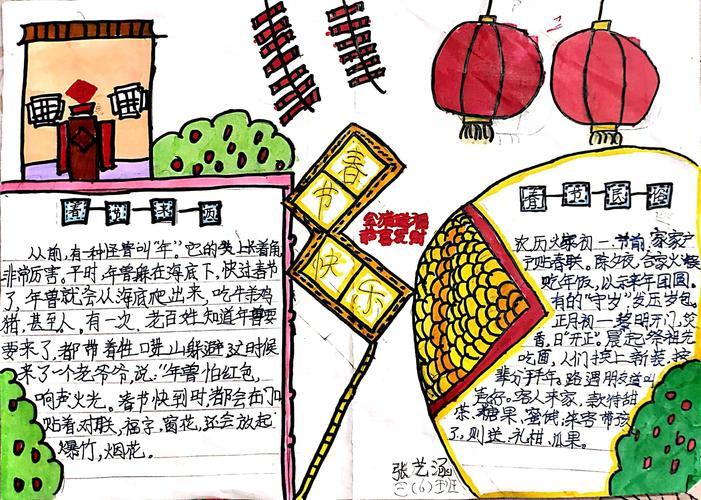 春节
快乐
恭喜发财
春节民俗
从前,有一种怪兽叫“年”。它的头上长着角
非常厉害。平时,年兽躲在海底下,快过春节
了,年兽就会从海底爬出来,吃牛羊鸡
猪,甚至人。有一次,老百姓知道年兽要
要来了,都带着牲口进山躲避这时候
来了一个老爷爷,说:“年兽怕红包,
响声火光。春节快到时都会在门口
贴着对联,福字,窗花,还会放起
爆竹,烟花。
农历
初一节前,家家户
户贴春联。除夕夜,合家
吃年饭,以示来年团圆。
有的“守岁”发压岁包。
正月初一黎明开门,
香,曰“开正”。晨起祭祖先
吃面,人们换上新装,按
辈分拜年。路遇朋友道
客人来家,款待甜
茶、糖果,蜜饯,
了,则送 礼柑,瓜果。
张艺涵
三(6)班